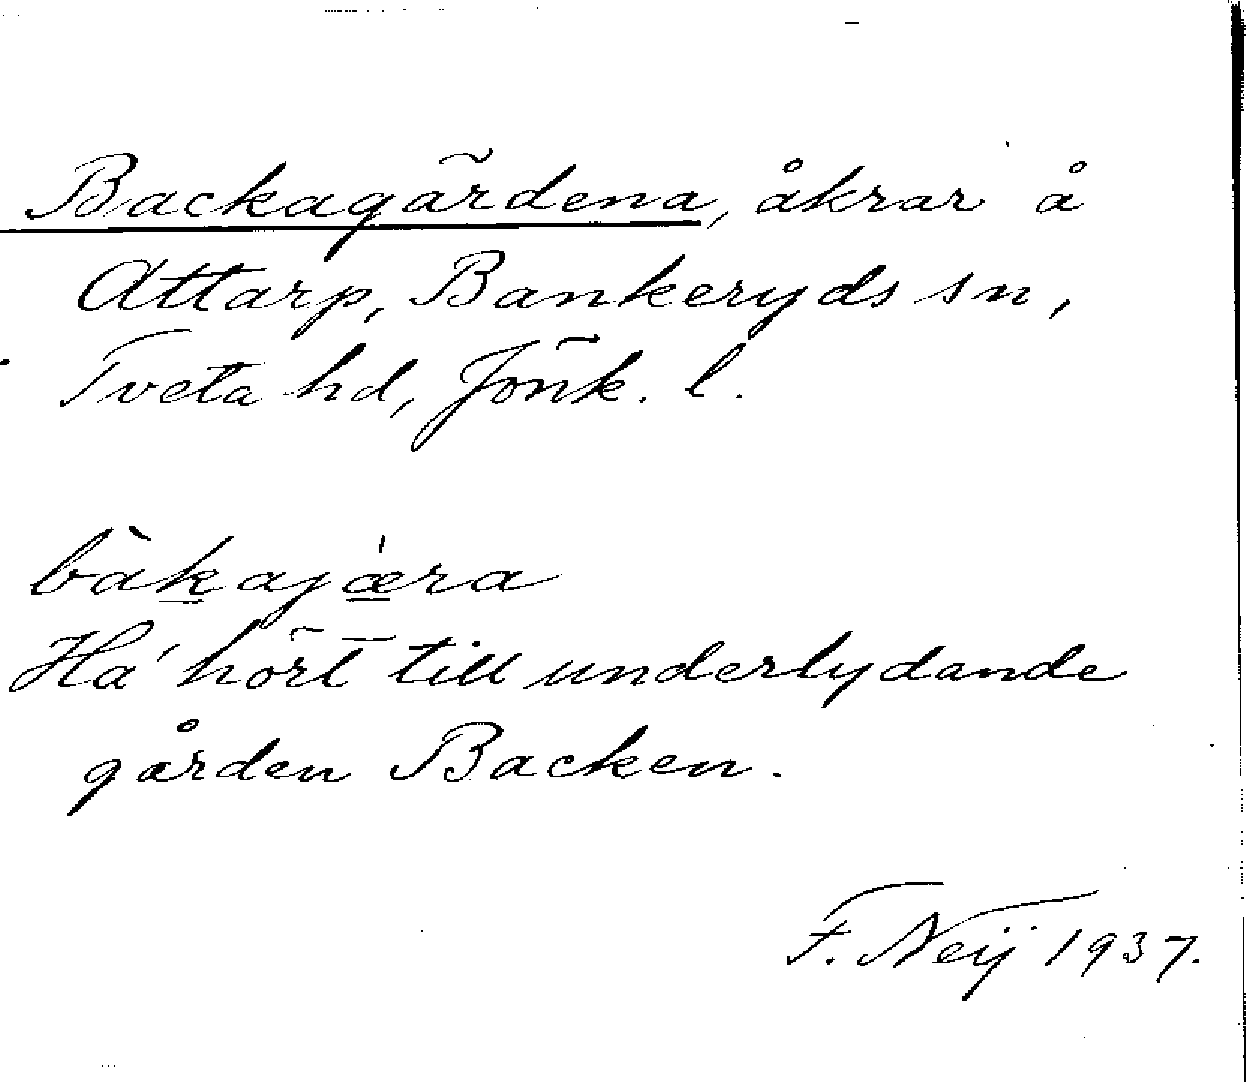 Backagärdena, åkrar å
Attarp, Bankeryds sn,
Tveta hd, Jönk. l.
bàkajæ̀ra
Ha hört till underlydande
gården Backen.
F. Neij 1937.